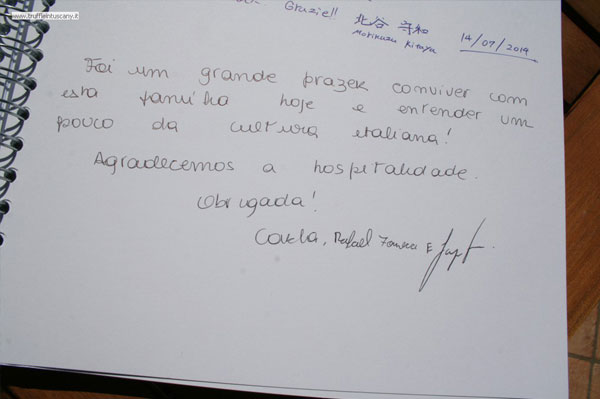 www.truffleintuscany.it
Grazie!!
北谷 守和
Morikazu Kitaya
14/07/2014
Foi um grande prazer conviver com
esta família hoje e entender um
pouco da cultura italiana!
Agradecemos a hospitalidade.
Obrigada!
Rafael Fonseca E